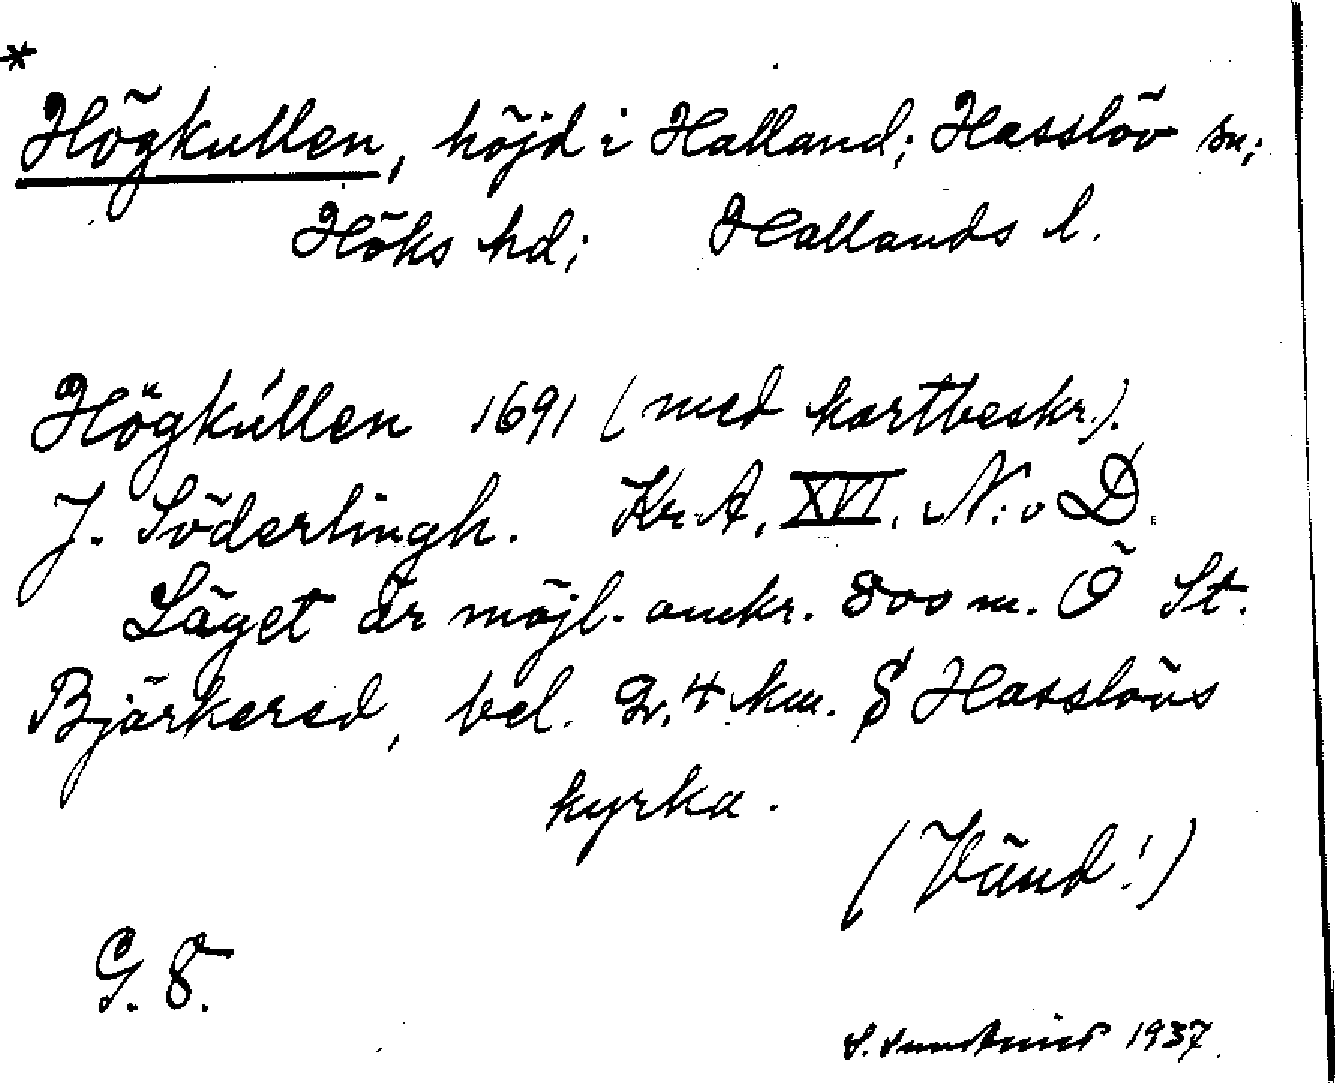 *
Högkullen, höjd i Halland; Hasslöv sn;
Höks hd; Hallands l.
Högkúllen 1691 (med kartbeskr.).
J. Söderlingh. Kr.A. XVI. N:o D.
Läget är möjl. omkr. 800 m. Ö St.
Bjärkered, bel. 2,4 km. S Hasslövs
kyrka.
(Vänd!)
G. 8.
1937.